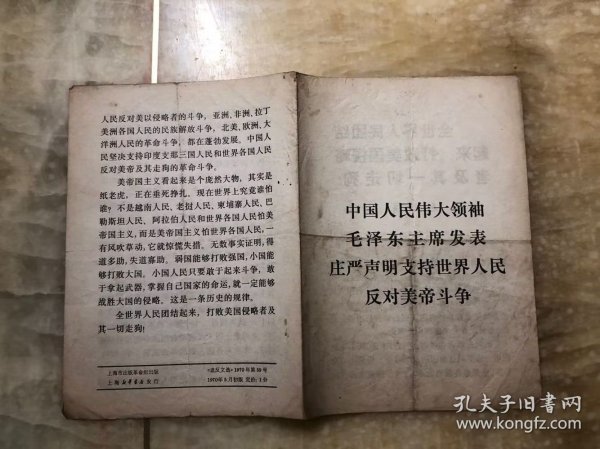 人民反对美以侵略者的斗争，亚洲、非洲、拉丁
美洲各国人民的民族解放斗争，北美、欧洲、大
洋洲人民的革命斗争，都在蓬勃发展。中国人
民坚决支持印度支那三国人民和世界各国人民
反对美帝及其走狗的革命斗争。
美帝国主义看起来是个庞然大物，其实是
纸老虎，正在垂死挣扎。现在世界上究竟谁怕
谁？不是越南人民、老挝人民、柬埔寨人民、巴
勒斯坦人民、阿拉伯人民和世界各国人民怕美
帝国主义，而是美帝国主义怕世界各国人民，一
有风吹草动，它就惊慌失措。无数事实证明，得
道多助，失道寡助。弱国能够打败强国，小国能
够打败大国。小国人民只要敢于起来斗争，敢
于拿起武器，掌握自己国家的命运，就一定能够
战胜大国的侵略。这是一条历史的规律。
全世界人民团结起来，打败美国侵略者及
其一切走狗！
上海市出版革命组出版
上海新华书店发行
1970年第59号
1970年5月初版 定价：1分
中国人民伟大领袖
毛泽东主席发表
庄严声明支持世界人民
反对美帝斗争
孔夫子旧书网
www.kongfz.com